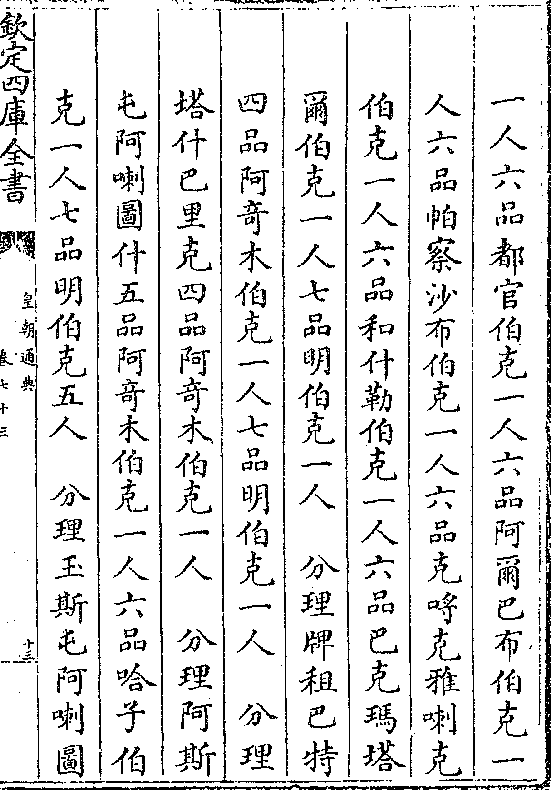 一人六品都官伯克一人六品阿爾巴布伯克一
人六品帕察沙布伯克一人六品克哷克雅喇克
伯克一人六品和什勒伯克一人六品巴克瑪塔
爾伯克一人七品明伯克一人 分理牌租巴特
四品阿奇木伯克一人七品明伯克一人 分理
塔什巴里克四品阿奇木伯克一人 分理阿斯
屯阿喇圖什五品阿奇木伯克一人六品哈子伯
克一人七品明伯克五人 分理玉斯屯阿喇圖
欽定四庫全書
皇朝通典
卷七十三
十三